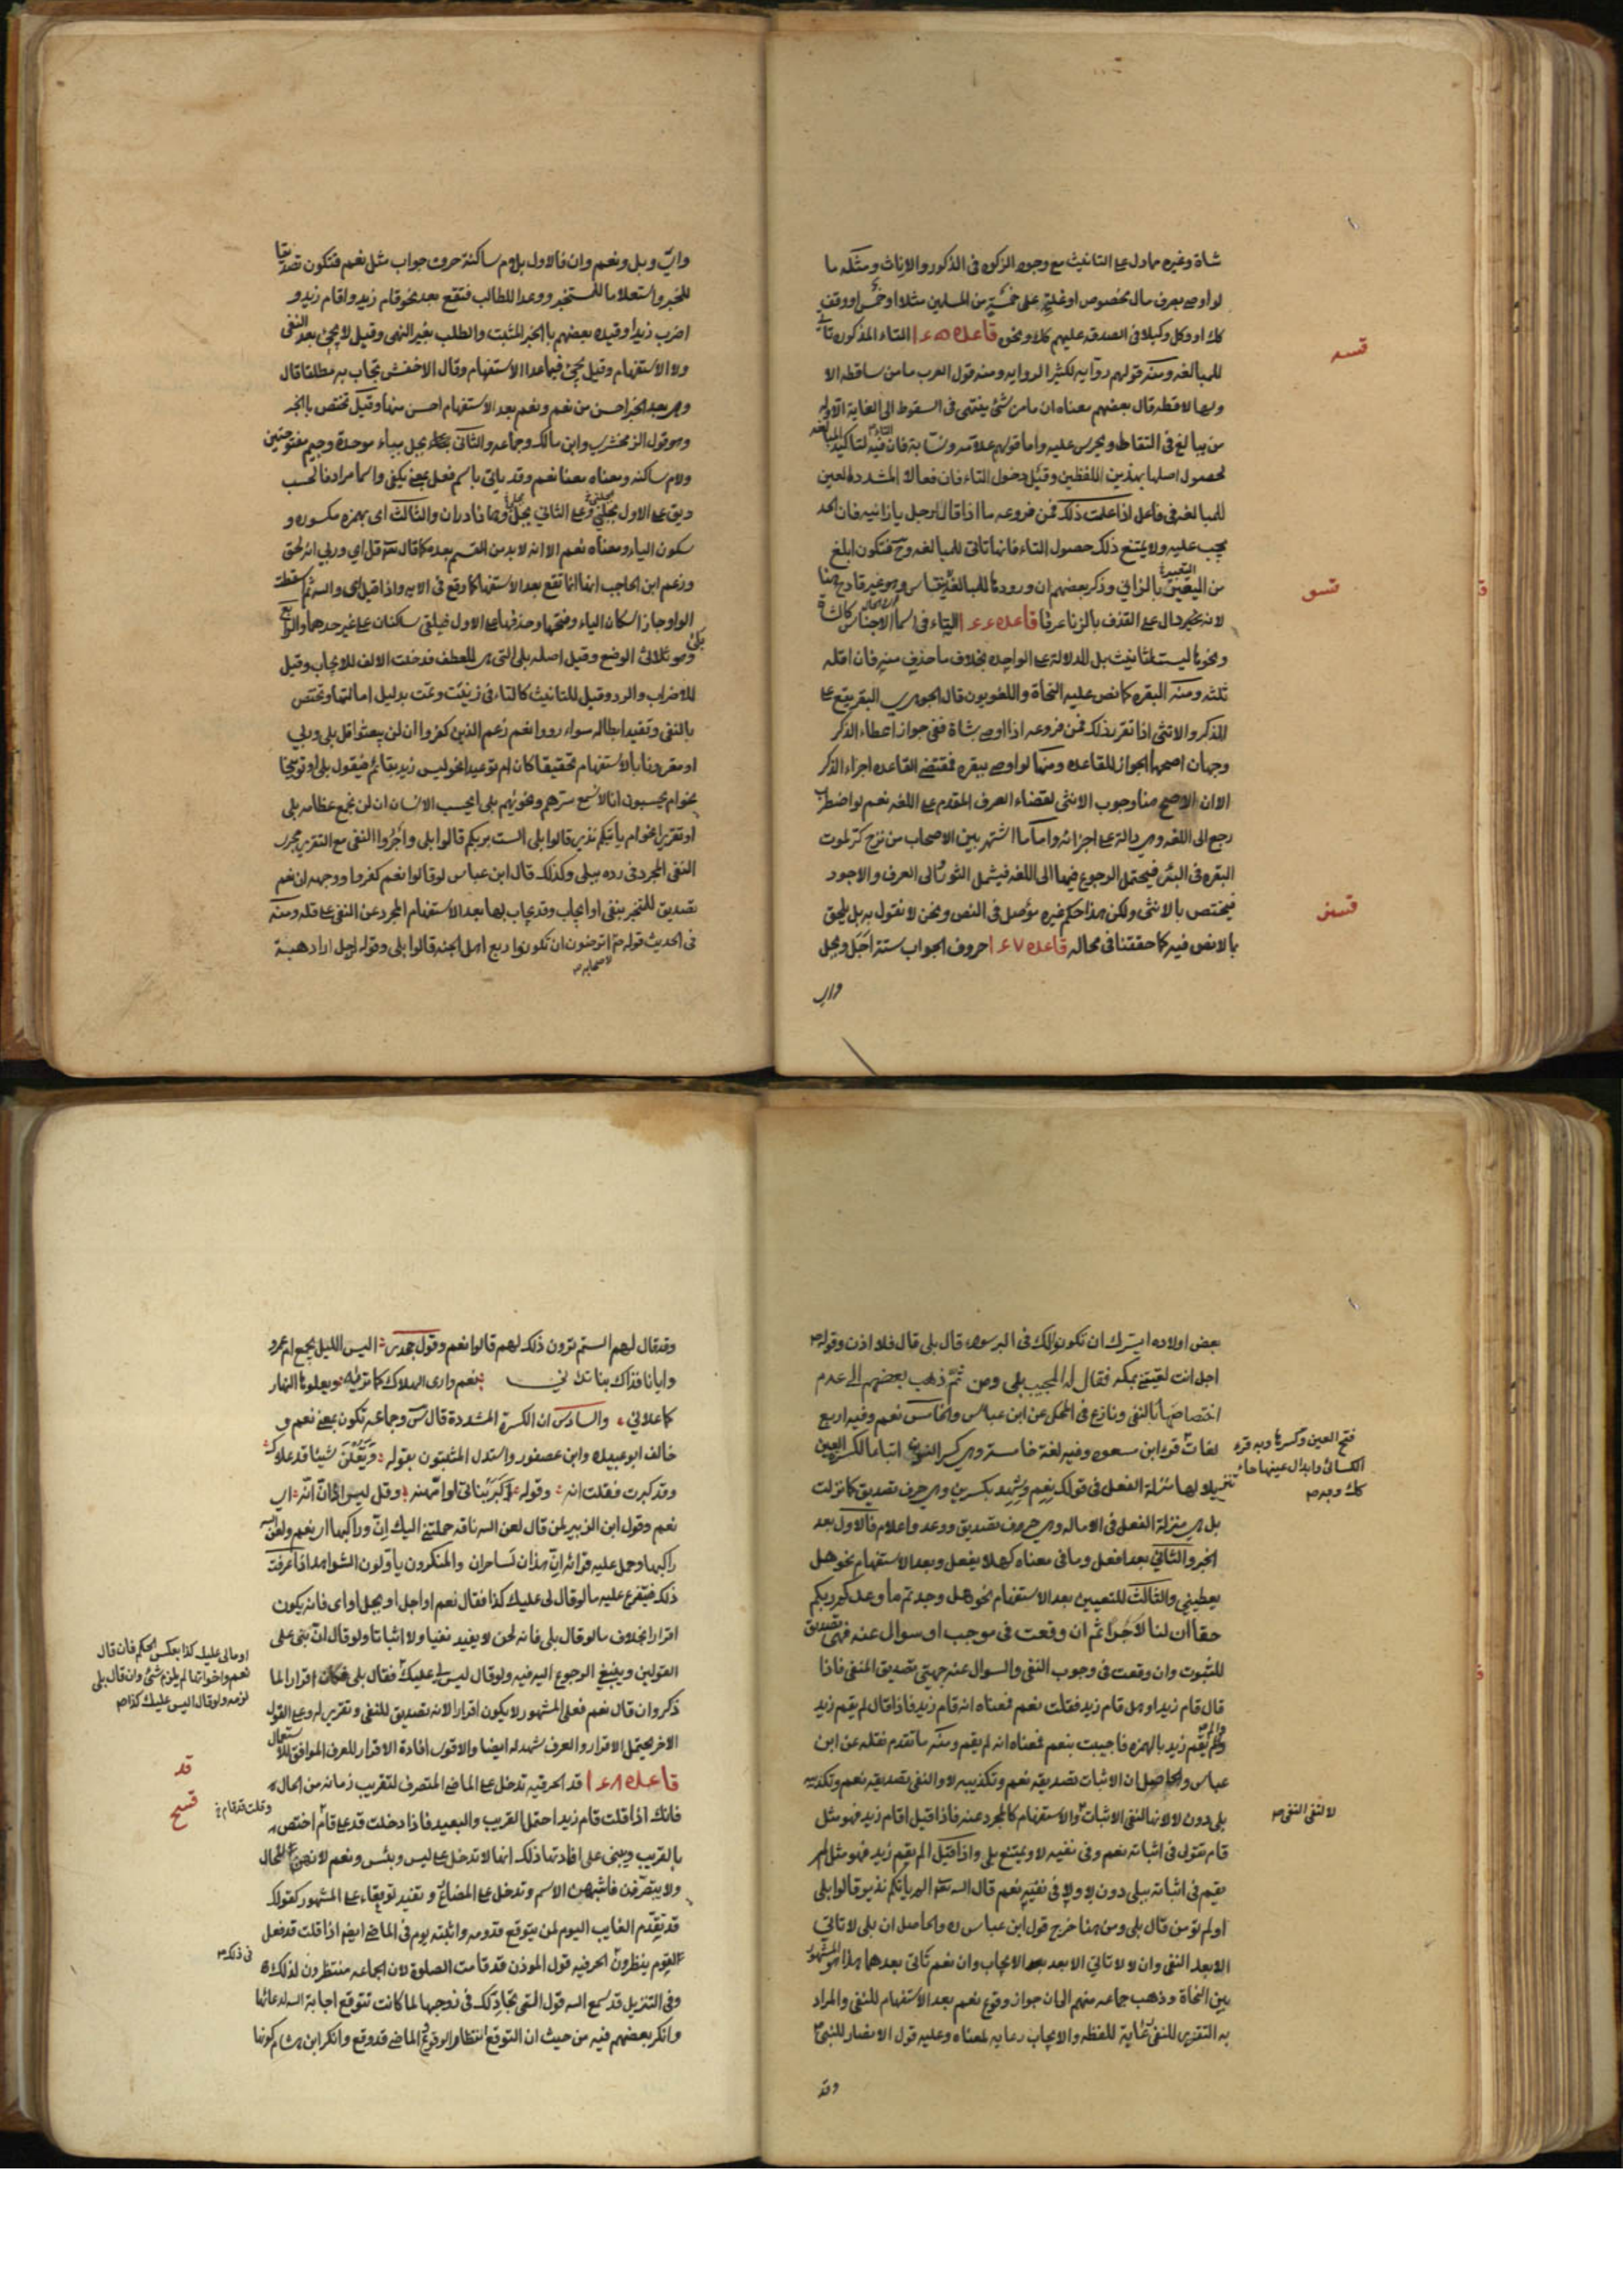 شاة وغيره مما دل على التانيث مع وجود الزكوة في الذكور والاناث ومثله ما
لو اوصى بصرف مال مخصوص او غلته على خمسة من المسلمين مثلا او خمس او وقف
كك او وكل وكيلا في الصدقه عليهم كك او نحو قاعدة ١٤٥ التاء المذكوره تاتي
للمبالغه ومنه قولهم روايه لكثير الروايه ومنه قول العرب ما من ساقطه الا
ولها لاقطه قال بعضهم معناه ان ما من شئ ينتهى في السقوط الى الغاية الا وله
من يبالغ في التقاطه ويحرص عليه واما قولهم علامه ونسابة فان فيه التاء لتاكيد المبالغه
لحصول اصلها بهذين اللفظين وقيل دخول التاء فان فعالا المشدد العين
للمبالغه في فاعل اذا علمت ذلك فمن فروعه ما اذا قال لرجل يا زانيه فان الحد
يجب عليه ولا يمتنع ذلك حصول التاء فانها تاتي للمبالغه وح فتكون ابلغ
من التعبير بالزاني وذكر بعضهم ان ورودها للمبالغة لا ينقاس وهو غير قادح هنا
لانه يخبر دال على القذف بالزنا عرفا قاعدة ١٤٦ التاء في اسماء الاجناس كالشاة
ونحوها ليست للتانيث بل للدلالة على الواحده بخلاف ما حذف منه فان اقله
ثلثه ومنه البقره كما نص عليه النحاة واللغويون قال الجوهري البقر يقع على
المذكر والانثى اذا تقرر ذلك فمن فروعه اذا اوصى بشاة ففي جواز اعطاء الذكر
وجهان اصحهما الجواز للقاعده ومنها لو اوصى ببقره فمقتضى القاعده اجزاء الذكر
الا ان الاصح هنا وجوب الانثى لقضاء العرف المقدم على اللغه نعم لو اضطرب
رجع الى اللغه وهي دالة على اجزائه واما ما اشتهر بين الاصحاب من نزح كر لموت
البقره في البئر فيحتمل الرجوع فيها الى اللغه فيشمل الثور والى العرف والاجود
فيختص بالانثى ولكن هذا حكم غيره مؤصل في النص ونحن لا نقول به بل يلحق
بما لا نص فيه كما حققنا في محاله قاعدة ١٤٧ حروف الجواب ستة اجل وبجل
واي
قسه
قسو
قسز
واي وبلى ونعم وان فالاول بلام ساكنة حرف جواب مثل نعم فتكون تصديقا
للمخبر واستعلاما للمستخبر ووعدا للطالب فتقع بعد نحو قام زيد واقام زيد و
اضرب زيدا وقيده بعضهم بالخبر المثبت والطلب بغير النهي وقيل لا يجئ بعد النفي
ولا الاستفهام وقيل يجئ فيما عدا الاستفهام وقال الاخفش يجاب به مطلقا قال
وهي بعد الخبر احسن من نعم ونعم بعد الاستفهام احسن منها وقيل تختص بالخبر
وهو قول الزمخشري وابن مالك وجماعه والثاني بجل بباء موحدة وجيم مفتوحتين
ولام ساكنه ومعناه معنا نعم وقد ياتي باسم فعل بمعنى يكفي واسما مرادفا لحسب
ويق على الاول بجلني وعلى الثاني بجلي وهما نادران والثالث اى بهمزه مكسوره و
سكون الياء ومعناه نعم الا انه لا بد من القسم بعده كما قال تعه قل اي وربي انه لحق
وزعم ابن الحاجب انها انما تقع بعد الاستفهام كما وقع في الايه واذا قيل اى والله ثم سقطت
الواو جاز اسكان الياء وفتحها وحذفها على الاول فيلتقي ساكنان على غير حدهما والرابع
بلى وهو ثلاثى الوضع وقيل اصله بل التي هي للعطف فدخلت الالف للايجاب وقيل
للاضراب والرد وقيل للتانيث كالتاء في ربت وثمت بدليل امالتها وتختص
بالنفي وتفيد ابطاله سواء ردا نعم زعم الذين كفروا ان لن يبعثوا قل بلى وربي
او مقرونا بالاستفهام تحقيقا كان ام توعيد نحو ليس زيد بقائم فيقول بلى او توبيخا
نحو ام يحسبون انا لا نسمع سرهم ونحويهم بلى ايحسب الانسان ان لن نجمع عظامه بلى
او تقريرا نحو الم ياتكم نذير قالوا بلى الست بربكم قالوا بلى واجروا النفي مع التقرير مجرى
النفي المجرد في رده ببلى وكذلك قال ابن عباس لو قالوا نعم كفروا ووجهه ان نعم
تصديق للمخبر بنفي او ايجاب وقد يجاب بها بعد الاستفهام المجرد عن النفي على قله ومنه
في الحديث قوله لاصحابه اترضون ان تكونوا ربع اهل الجنه قالوا بلى وقوله لرجل اراد هبة
بعض اولاده ايسرك ان تكونوا لك في البر سواء قال بلى قال فلا اذن وقوله
اجل انت لقيتني بمكه فقال له المجيب بلى ومن ثم ذهب بعضهم الى عدم
اختصاصها بالنفي ونازع في المحكي عن ابن عباس والخامس نعم وفيه اربع
لغات قوله ابن مسعود وفيه لغة خامسة وهي كسر النون اتباعا لكسر العين
تنزيلا لها منزلة الفعل في قولك نعم وشهد بكسرين وهي حرف تصديق كما نزلت
بلى منزلة الفعل في الاماله وهي حروف تصديق ووعد واعلام فالاول بعد
الخبر والثاني بعد افعل وما في معناه كهلا يفعل وبعد الاستفهام نحو هل
يعطيني والثالث للتعيين بعد الاستفهام نحو هل وجدتم ما وعدكم ربكم
حقا أن لنا لاجرا ثم ان وقعت في موجب او سوال عنه فهى تصديق
للثبوت وان وقعت في وجوب النفي والسوال عنه جهتي تصديق المنفي فاذا
قال قام زيد او هل قام زيد فقلت نعم فمعناه انه قام زيد فاذا قال لم يقم زيد
والم يقم زيد بالهمزه فاجيبت بنعم فمعناه انه لم يقم ومنه ما تقدم نقله عن ابن
عباس والحاصل ان الاثبات تصديقه نعم وتكذيبه لا والنفي تصديقه نعم وتكذيبه
بلى دون لا لانها لنفي الاثبات والاستفهام كالمجرد عنه فاذا قيل اقام زيد فهو مثل
قام تقول في اثباته نعم وفي نفيه لا ويمتنع بلى واذا قيل الم يقم زيد فهو مثل لم
يقم في اثباته ببلى دون لا ولا في نفيه نعم قال الله تعه الم ياتكم نذير قالوا بلى
اولم تؤمن قال بلى ومن هنا خرج قول ابن عباس ره والحاصل ان بلى لا تاتي
الا بعد النفي وان لا لا تاتي الا بعد الايجاب وان نعم تاتى بعدهما هذا هو المشهور
بين النحاة وذهب جماعه منهم الى ان جواز وقوع نعم بعد الاستفهام للنفي والمراد
به التقرير للنفي رعاية للفظه والايجاب رعايه لمعناه وعليه قول الانصار للنبي
وقد
فتح العين وكسرها وبه قرء
الكسائى وابدال عينها حاء
لا لنفي النفي
وقد قال لهم الستم ترون ذلك لهم قالوا نعم وقول جحدر اليس الليل يجمع ام عمرو
وايانا فذاك بنا تداني نعم وارى الهلاك كما تراه ويعلوها النهار
كما علاني والسادس ان الكسرة المشددة قال س وجماعه تكون بمعنى نعم و
خالف ابو عبيده وابن عصفور واستدل المثبتون بقوله ويقلن شيئا قد علاك
وقد كبرت فقلت انه وقوله
نعم وقول ابن الزبير لمن قال لعن الله ناقه حملتني اليك ان وراكبها اى نعم ولعن الله
راكبها وحمل عليه قرائه ان هذان لساحران والمنكرون ياولون الشواهد اذا عرفت
ذلك فيتفرع عليه ما لو قال لى عليك كذا فقال نعم او اجل او بجل او اى فانه يكون
اقرارا بخلاف ما لو قال بلى فانه لحن لا يفيد نفيا ولا اثباتا ولو قال ان بنى على
القولين وينبغي الرجوع اليه فيه ولو قال ليس لي عليك فقال بلى فكان اقرارا لما
ذكر وان قال نعم فعلى المشهور لا يكون اقرارا لانه تصديق للنفي وتقرير له وعلى القول
الاخر يحتمل الاقرار والعرف شهد له ايضا والاقوى افادة الاقرار للعرف الموافق للاستعمال
قاعدة ١٤٨ قد الحرفيه تدخل على الماضى المتصرف لتقريب زمانه من الحال
فانك اذا قلت قام زيد احتمل القريب والبعيد فاذا دخلت قد على قام اختص
بالقريب ويبنى على افادتها ذلك انها لا تدخل على ليس وبئس ونعم لانهن للحال
ولا يتصرفن فاشبهن الاسم وتدخل على المضارع وتفيد توقعا على المشهور كقولك
قد يقدم الغايب اليوم لمن يتوقع قدومه واثبته يوم في الماضى ايضا اذا قلت قد فعل
القوم ينظرون الحرفيه قول الموذن قد قامت الصلوة لان الجماعه منتظرون لذلك
وفي التنزيل قد سمع الله قول التي تجادلك في زوجها لما كانت تتوقع اجابة الله لدعائها
وانكر بعضهم فيه من حيث ان التوقع انتظار الوقوع والماضى قد وقع وانكر ابن هشام كونها
او مالى عليك كذا بعكس الحكم فان قال
نعم واخواتها لم يلزم شئ وان قال بلى
لزمه ولو قال اليس عليك كذا
قد
قسح
وقلت قد قام
في ذلك